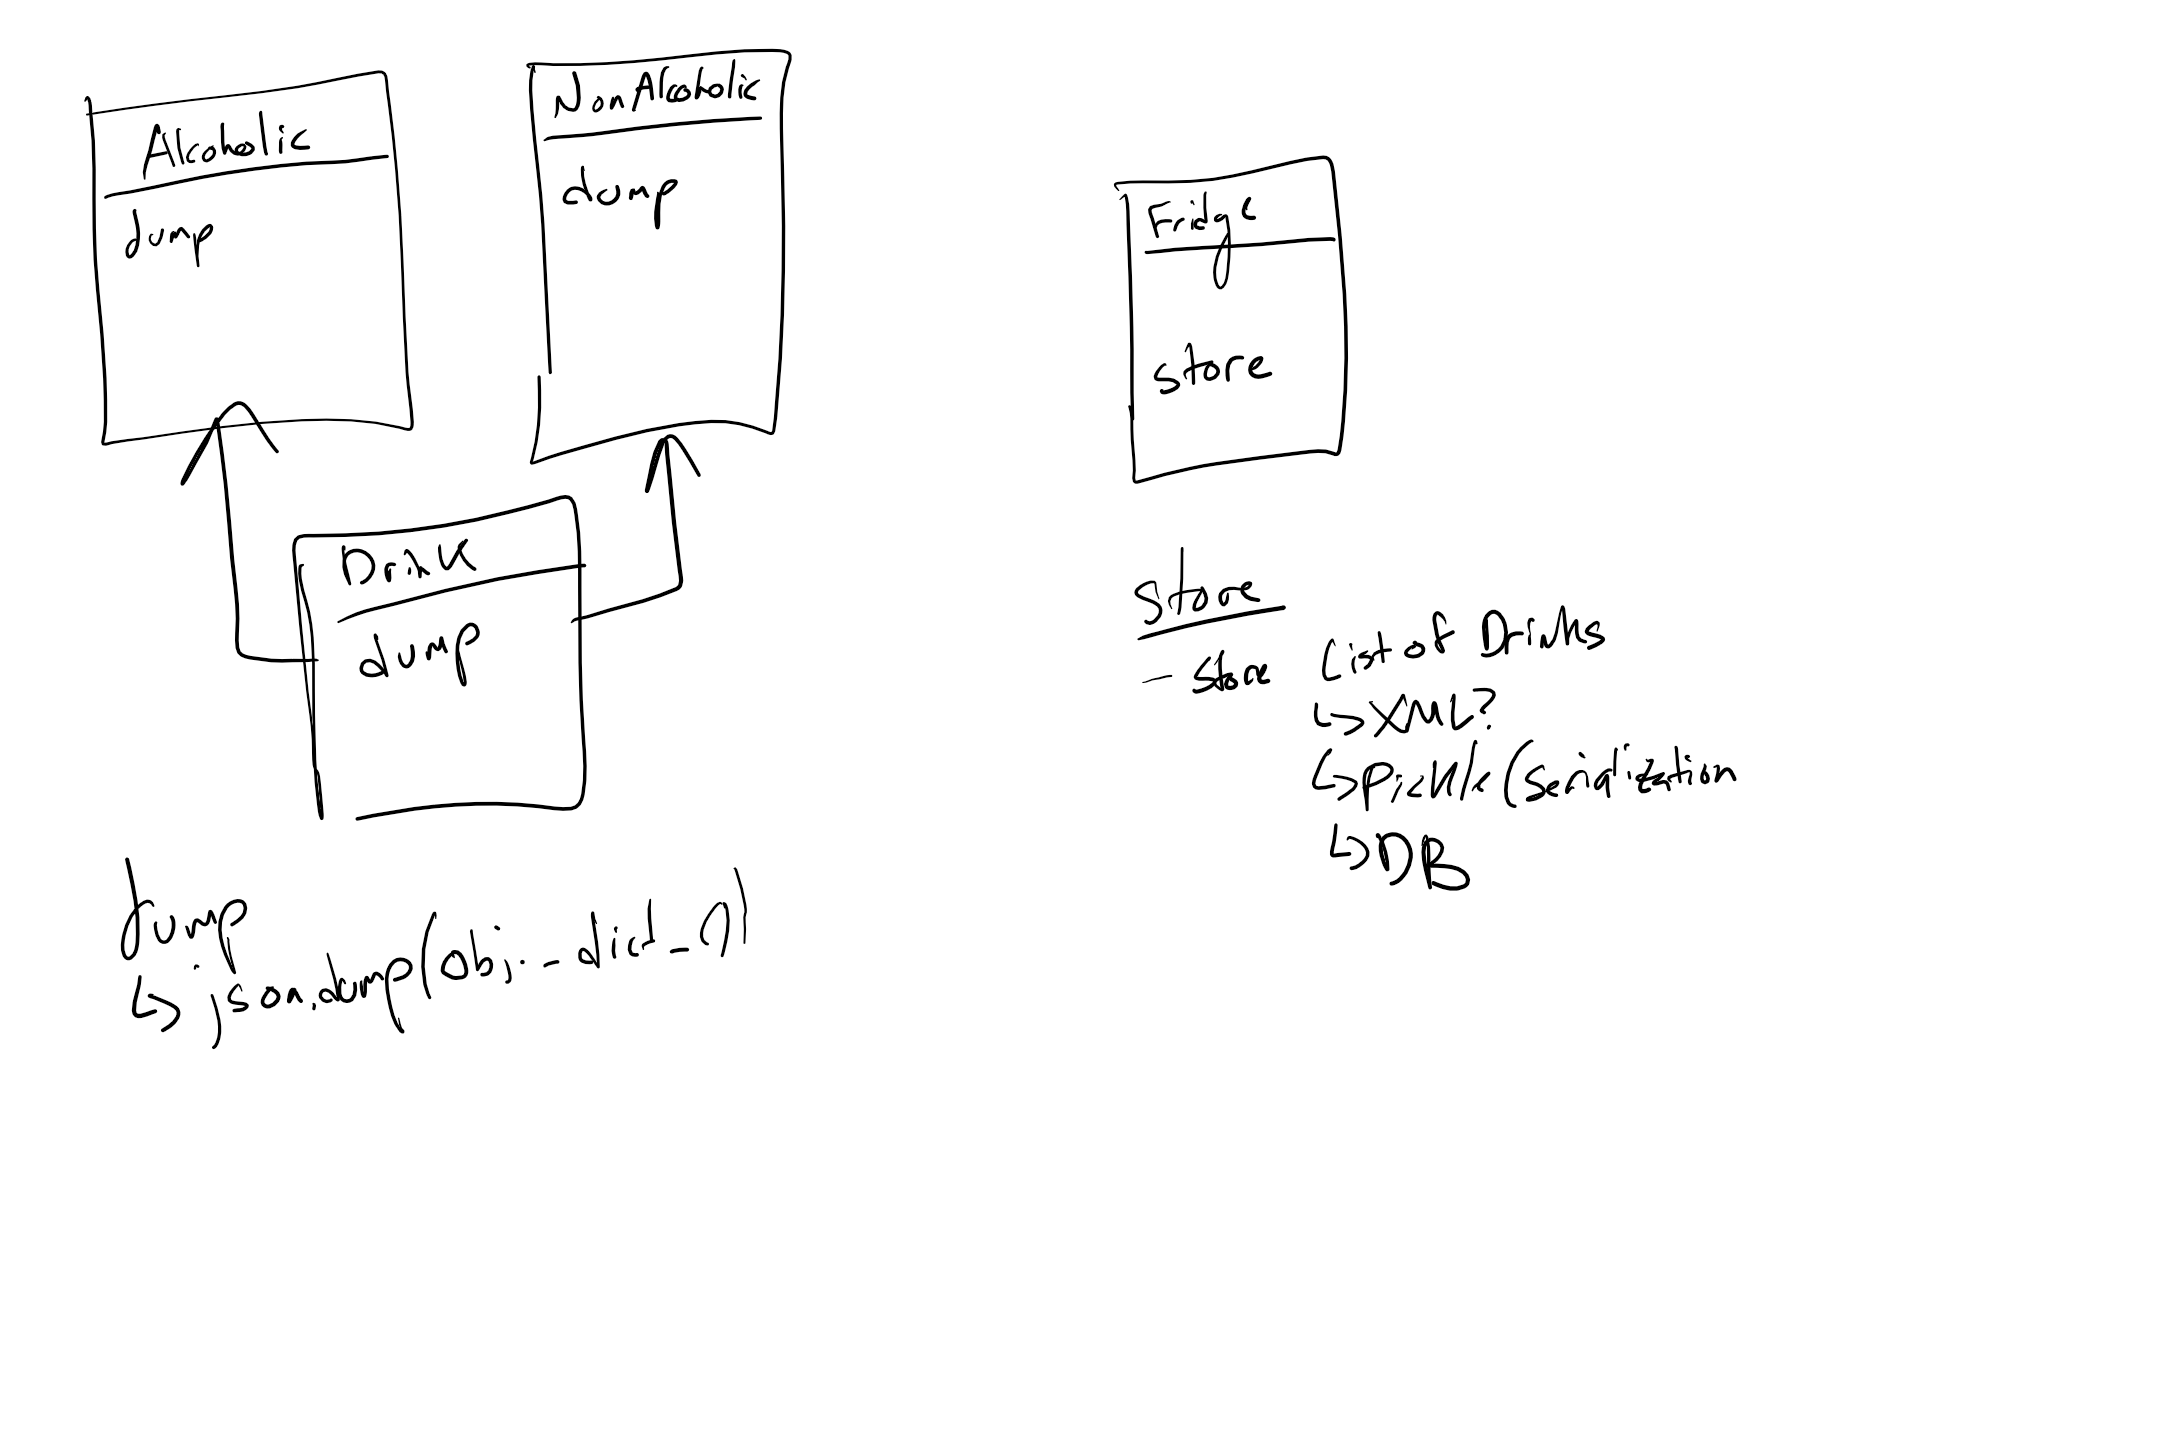 Alcoholic
dump
NonAlcoholic
dump
Drink
dump
dump
↳ json.dump(obj.__dict__())
Fridge
store
store
- store List of Drinks
↳ XML?
↳ Pickle (Serialization
↳ DB